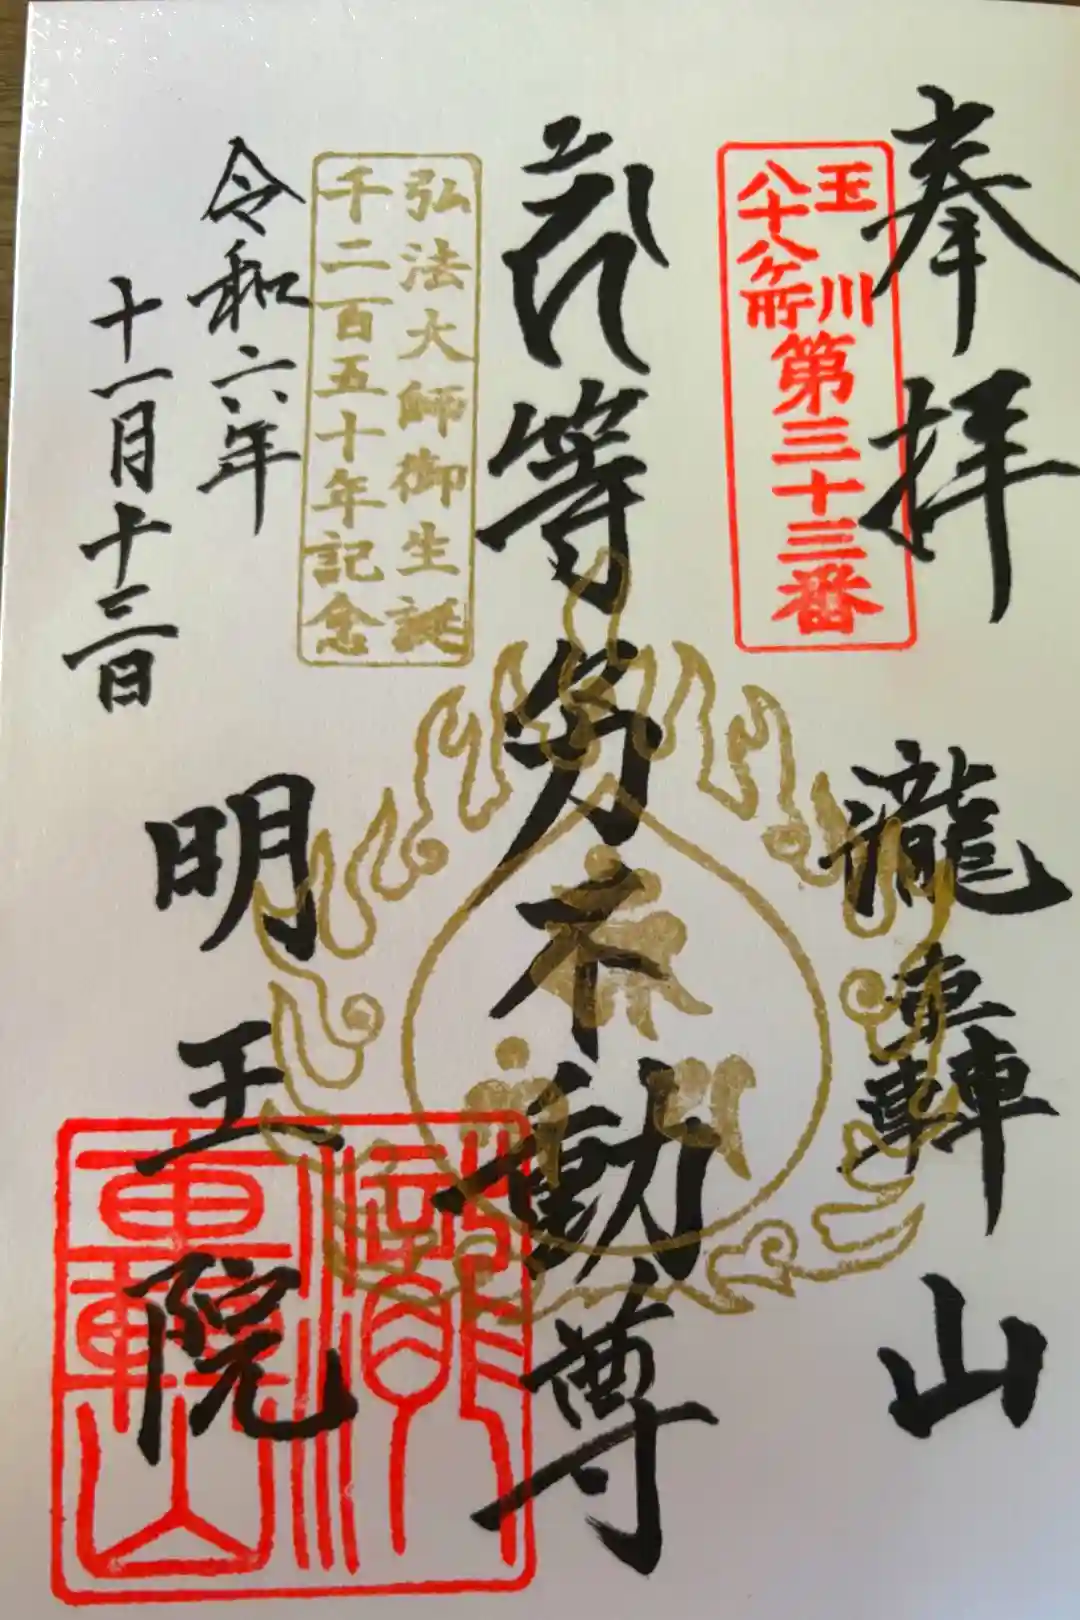 奉拝
瀧轟山
玉川
八十八ヶ所
第三十三番
等々力不動尊
弘法大師御生誕
千二百五十年記念
令和六年
十一月十三日
明王院
瀧
轟山